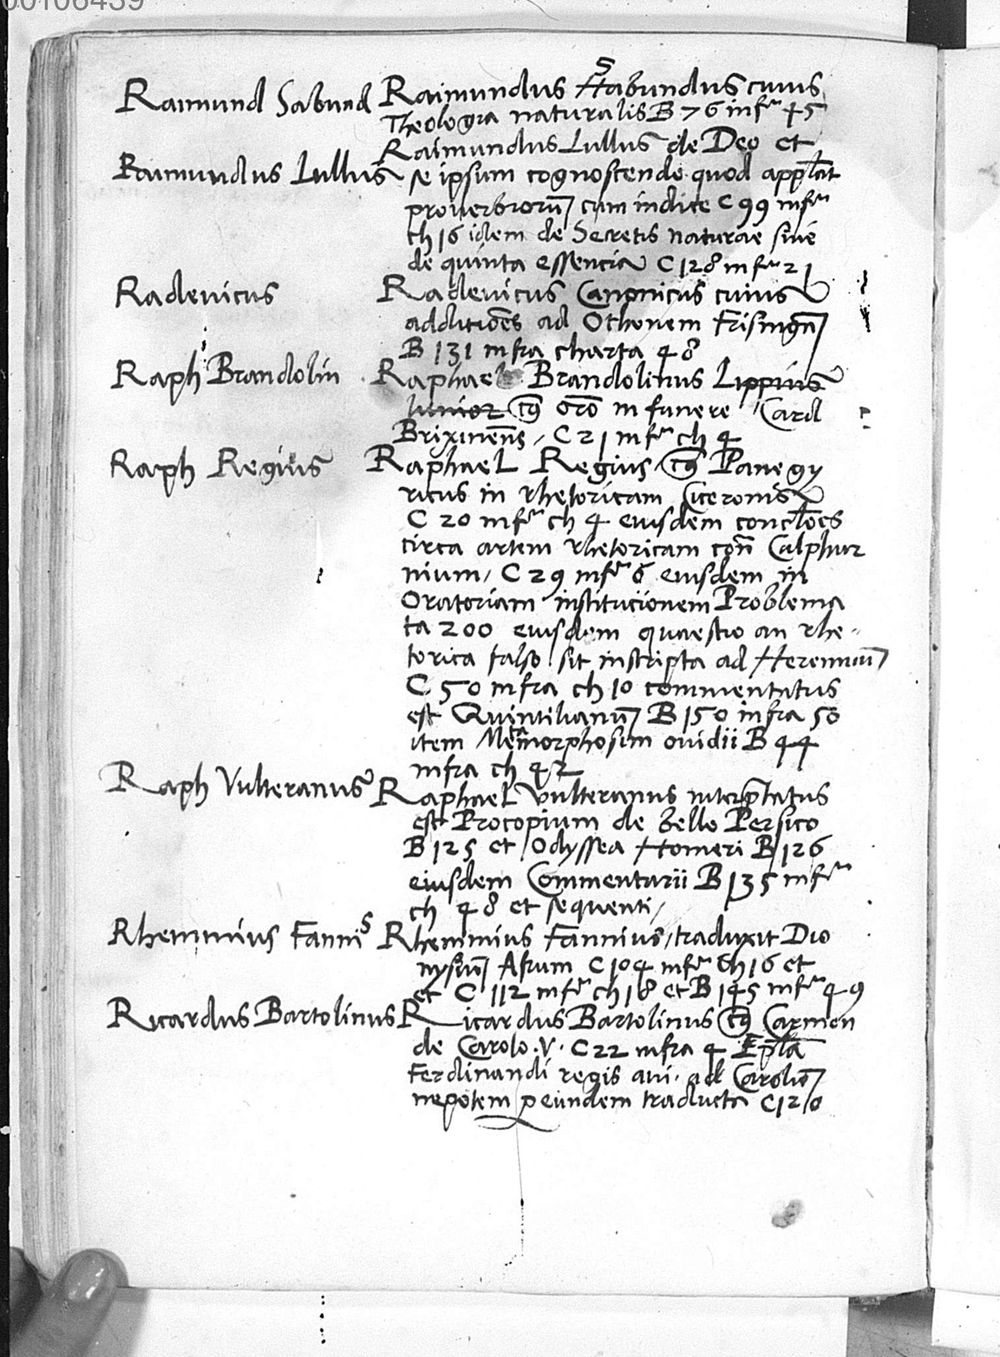 00106439
Raimund Sabund Raimundus Sabundus cuius
Theologia naturalis B 76 infra 45
Raimundus Lullus de Deo et
Raimundus Lullus se ipsum cognoscendo quod appellat
proverbiorum cum indice C 99 infra
ch 16 idem de Secretis naturae sive
de quinta essencia C 128 infra 21
Radevicus Radevicus Canonicus cuius
additiões ad Othonem Frisingen
B 131 infra charta 48
Raph Brandolin Raphael Brandolinus Lippius
Iunior cuius orõ in funere Card
Brixinens, C 21 infra ch 4
Raph Regius Raphael Regius, cuius Panegy
ricus in rhetoricam Ciceronis
C 20 infra ch 4 eiusdem conclões
circa artem rhetoricam con Calphur
nium, C 29 infra 6 eiusdem in
Oratoriam institucionem Problema
ta 200 eiusdem quaestio an rhe-
torica falso sit inscripta ad Herennium
C 50 infra ch 10 commentatus
est Quintilianum B 150 infra 50
item Metamorphosim ovidii B 44
infra ch 42
Raph Vulteranus Raphael Vulteranus interpretatus
est Procopium de bello Persico
B 125 et Odyssea Homeri B 126
eiusdem Commentarii B 135 infra
ch 48 et sequenti,
Rhemmius Fannius Rhemmius Fannius, traduxit Dio
nysium Afrum C 104 infra ch 16 et
et C 112 infra ch 18 et B 145 infra 49
Ricardus Bartolinus Ricardus Bartolinus cuius Carmen
de Carolo .V. C 22 infra 4 Epla
Ferdinandi regis avi. ad Carolum
nepotem p eundem traducta C 120